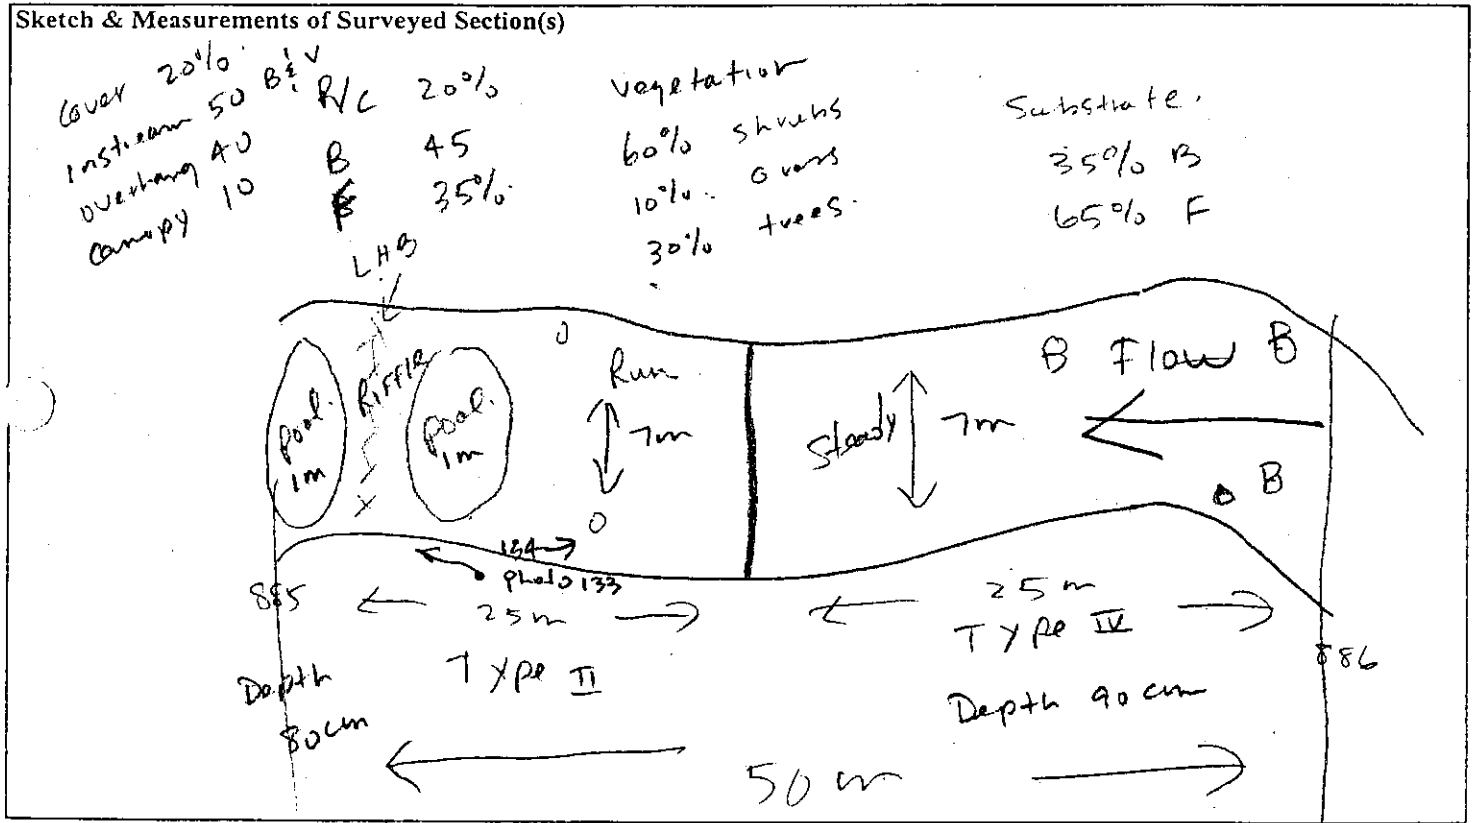 Sketch & Measurements of Surveyed Section(s)
Cover 20%
Instream 50 B & V
overhang 40
canopy 10
R/C 20%
B 45
35%
Vegetation
60% shrubs
10% Grass
30% trees.
Substrate.
35% B
65% F
LHB
Pool.
1m
RIFFLE
Pool.
1m
O
Run
7m
O
Steady
7m
B Flow B
B
134
photo 133
885
25m
Type II
Depth
80cm
25m
Type IV
Depth 90cm
886
50m